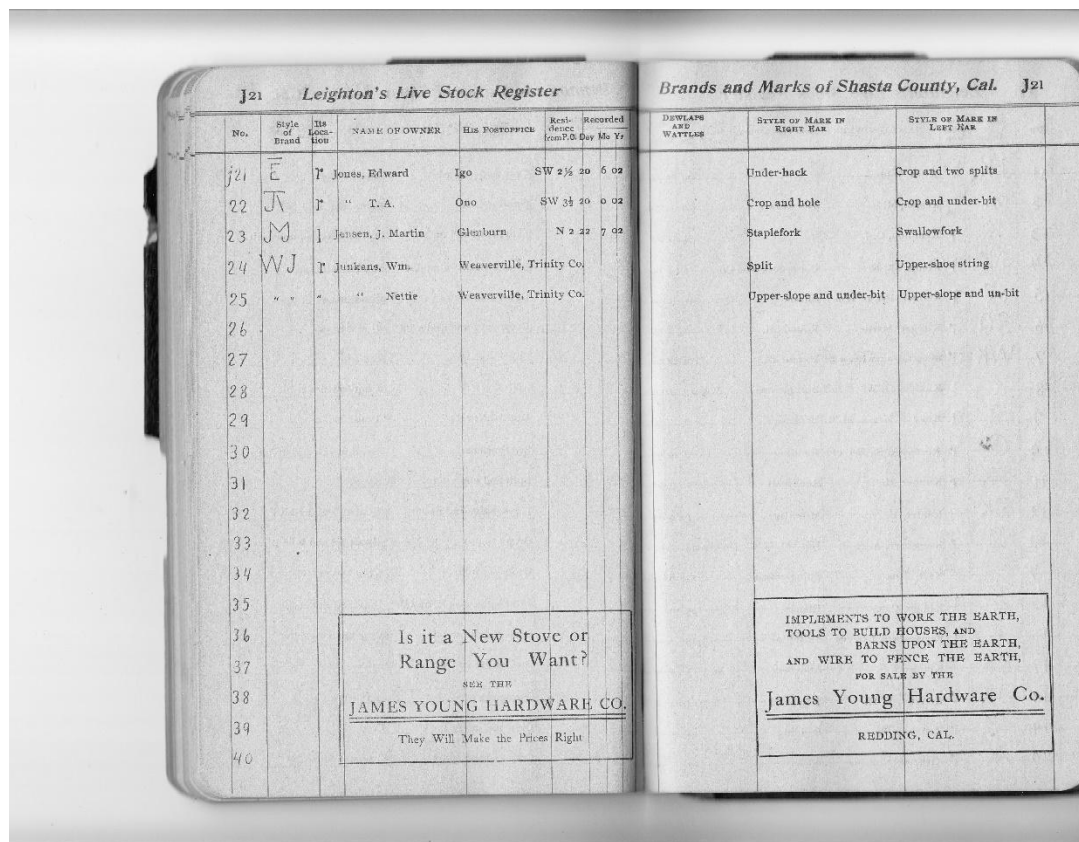 J21 Leighton's Live Stock Register
No. Style of Brand Its Loca- tion NAME OF OWNER HIS POSTOFFICE Resi- dence from P.O. Recorded Day Mo Yr
j21 E r Jones, Edward Igo SW 2½ 20 6 02
22 JA r " T. A. Ono SW 3½ 20 6 02
23 JM l Jensen, J. Martin Glenburn N 2 22 7 02
24 WJ r Junkans, Wm. Weaverville, Trinity Co.
25 " " " " Nettie Weaverville, Trinity Co.
26
27
28
29
30
31
32
33
34
35
36
37
38
39
40
Is it a New Stove or
Range You Want?
SEE THE
JAMES YOUNG HARDWARE CO.
They Will Make the Prices Right
Brands and Marks of Shasta County, Cal. J21
DEWLAPS AND WATTLES STYLE OF MARK IN RIGHT EAR STYLE OF MARK IN LEFT EAR
Under-hack Crop and two splits
Crop and hole Crop and under-bit
Staplefork Swallowfork
Split Upper-shoe string
Upper-slope and under-bit Upper-slope and un-bit
IMPLEMENTS TO WORK THE EARTH,
TOOLS TO BUILD HOUSES, AND
BARNS UPON THE EARTH,
AND WIRE TO FENCE THE EARTH,
FOR SALE BY THE
James Young Hardware Co.
REDDING, CAL.